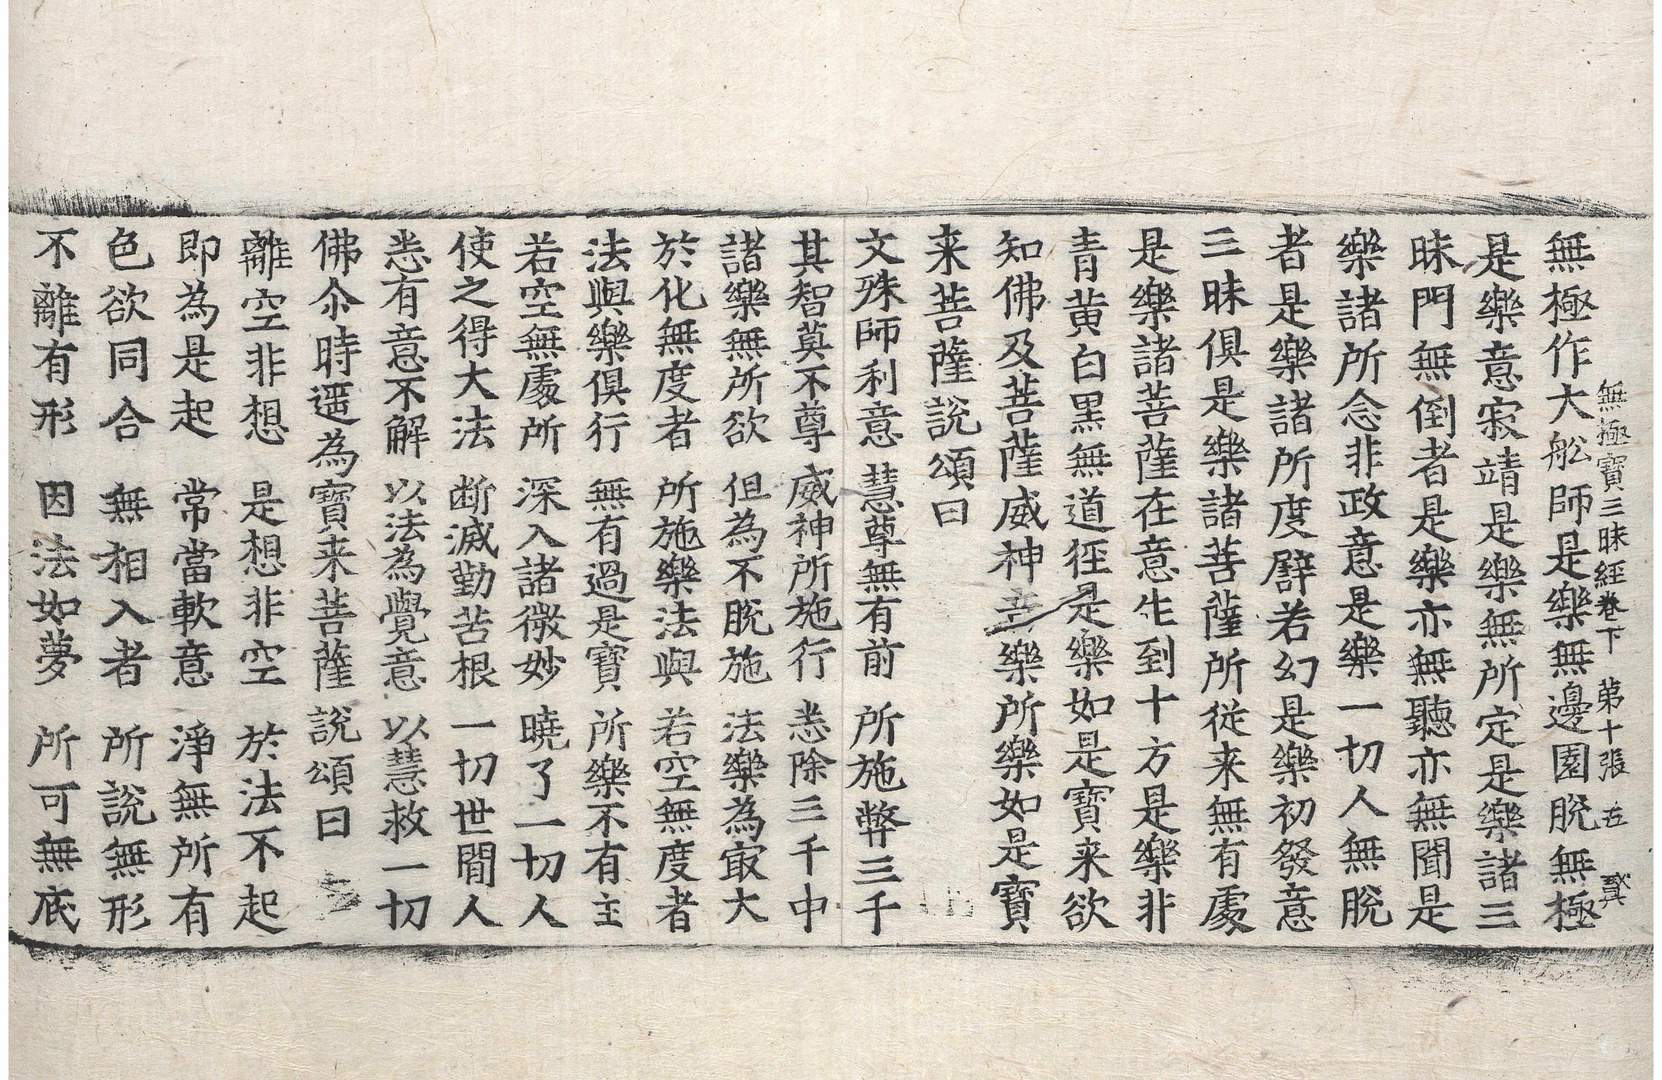 無極寶三昧経卷下　第十張
無極作大舩師是樂無邊園脫無極
是樂意寂靖是樂無所定是樂諸三
昧門無倒者是樂亦無聽亦無聞是
樂諸所念非政意是樂一切人無脫
者是樂諸所度譬若幻是樂初發意
三昧俱是樂諸菩薩所従来無有處
是樂諸菩薩在意生到十方是樂非
青黄白黑無道径是樂如是寶来欲
知佛及菩薩威神樂所樂如是寶
来菩薩說頌曰
文殊師利意　慧尊無有前　所施弊三千
其智莫不尊　威神所施行　悉除三千中
諸樂無所欲　但為不脫施　法樂為㝡大
於化無度者　所施樂法與　若空無度者
法與樂俱行　無有過是寶　所樂不有主
若空無處所　深入諸微妙　曉了一切人
使之得大法　断滅勤苦根　一切世間人
悉有意不解　以法為覺意　以慧救一切
佛尒時遥為寶来菩薩說頌曰
離空非想　是想非空　於法不起
即為是起　常當軟意　淨無所有
色欲同合　無相入者　所說無形
不離有形　因法如夢　所可無底